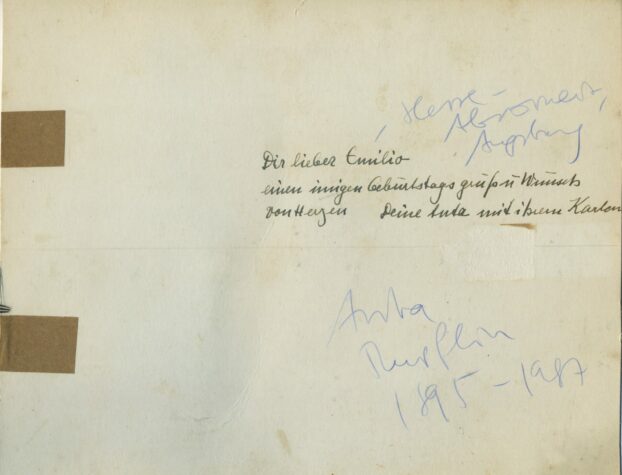 Hesse-
Augsburg
Dir lieber Emilio
einen innigen Geburtstags gruß u Wunsch
von Herzen Deine Anta mit ihrem Karlon
Anta
1895-1987